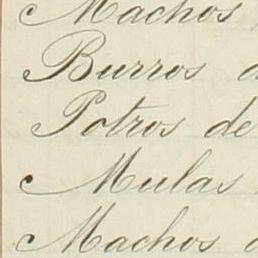 Machos
Burros d
Potros de
Mulas
Machos d